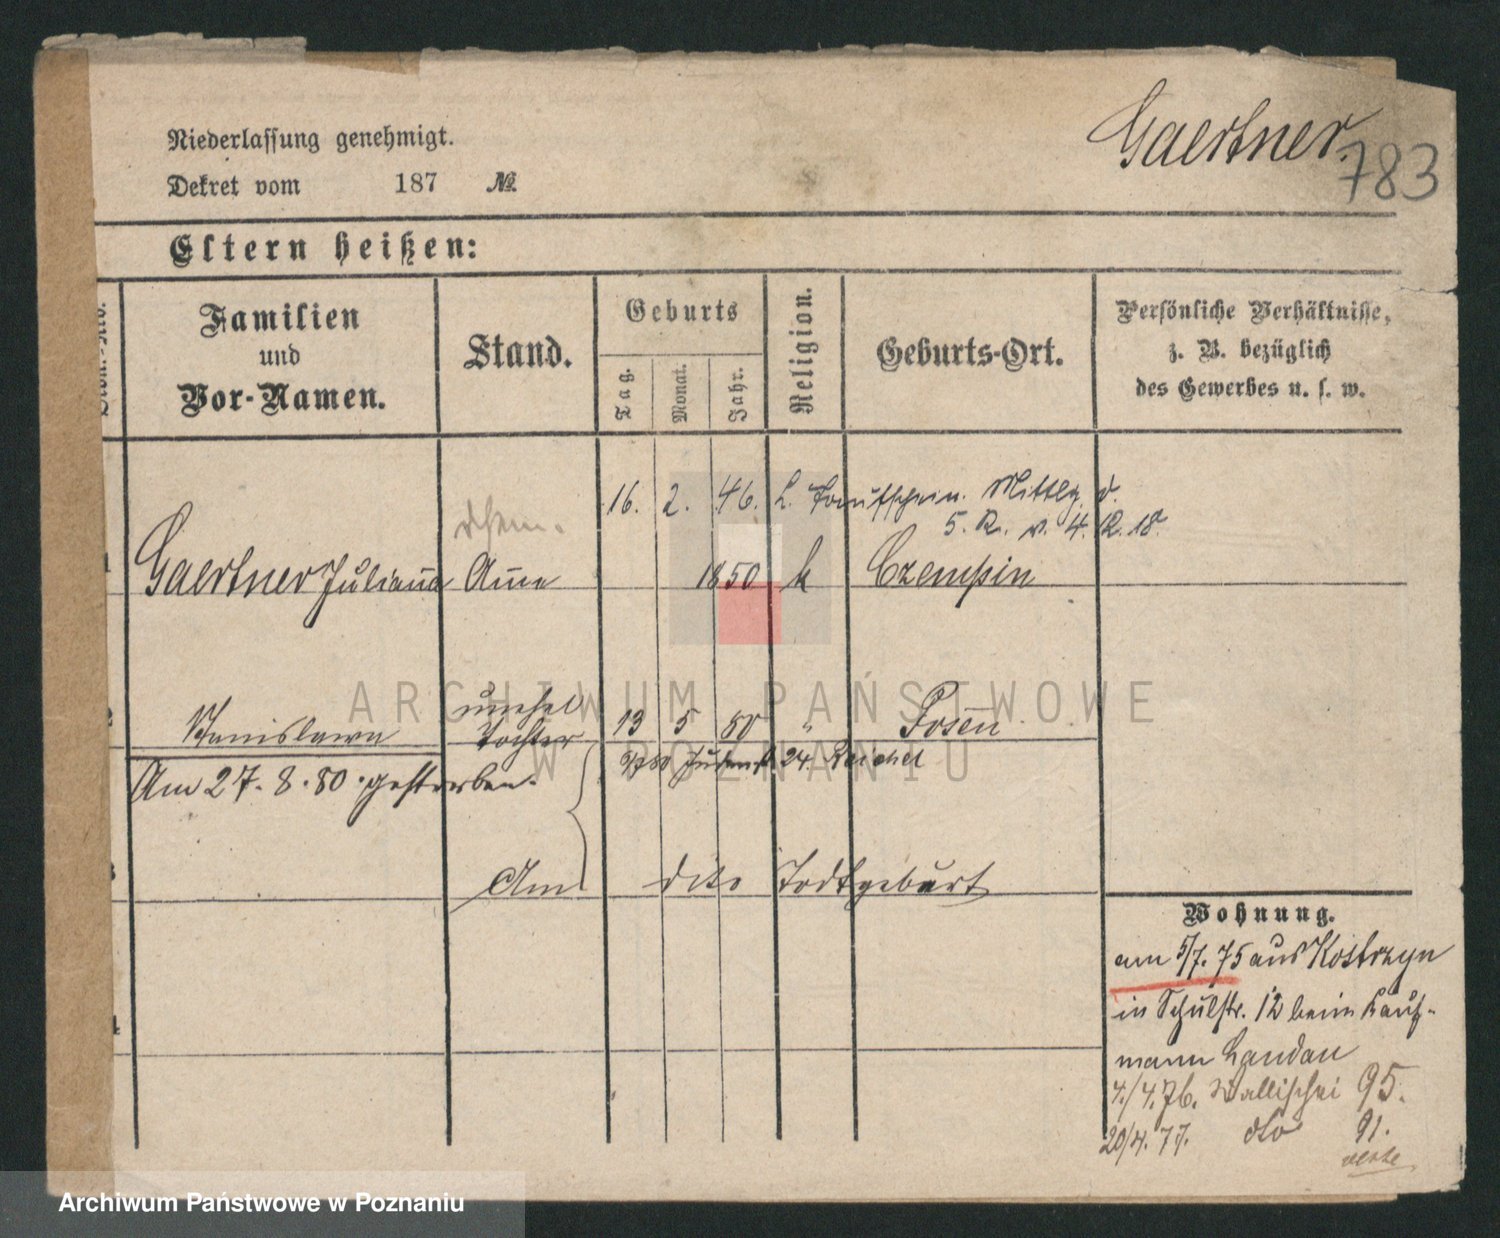 Niederlassung genehmigt.
Gaertner.
783
Dekret vom 187 №
Eltern heißen:
Familien und Vor-Namen.
Stand.
Geburts
Tag.
Monat.
Jahr.
Religion.
Geburts-Ort.
Persönliche Verhältnisse,
z. B. bezüglich
des Gewerbes u. s. w.
16. 2. 46. L. Taufschein. Mittlg. d.
5. R. v. 4.
1 Gaertner Juliana Ame 1850 k Czempin
unehel
2 Stanislawa Tochter 13 5 80 " Posen
Am 27. 8. 80 gestorben.
24. Reichel
3 Am dito Todtgeburt
4
Wohnung.
am 5/7. 75 aus Kostrzyn
in Schulstr. 12 beim Kauf-
mann Landau
4./4. 76. Wallischei 95.
20/4. 77. dto 91.
verte
ARCHIWUM PAŃSTWOWE
W POZNANIU
Archiwum Państwowe w Poznaniu